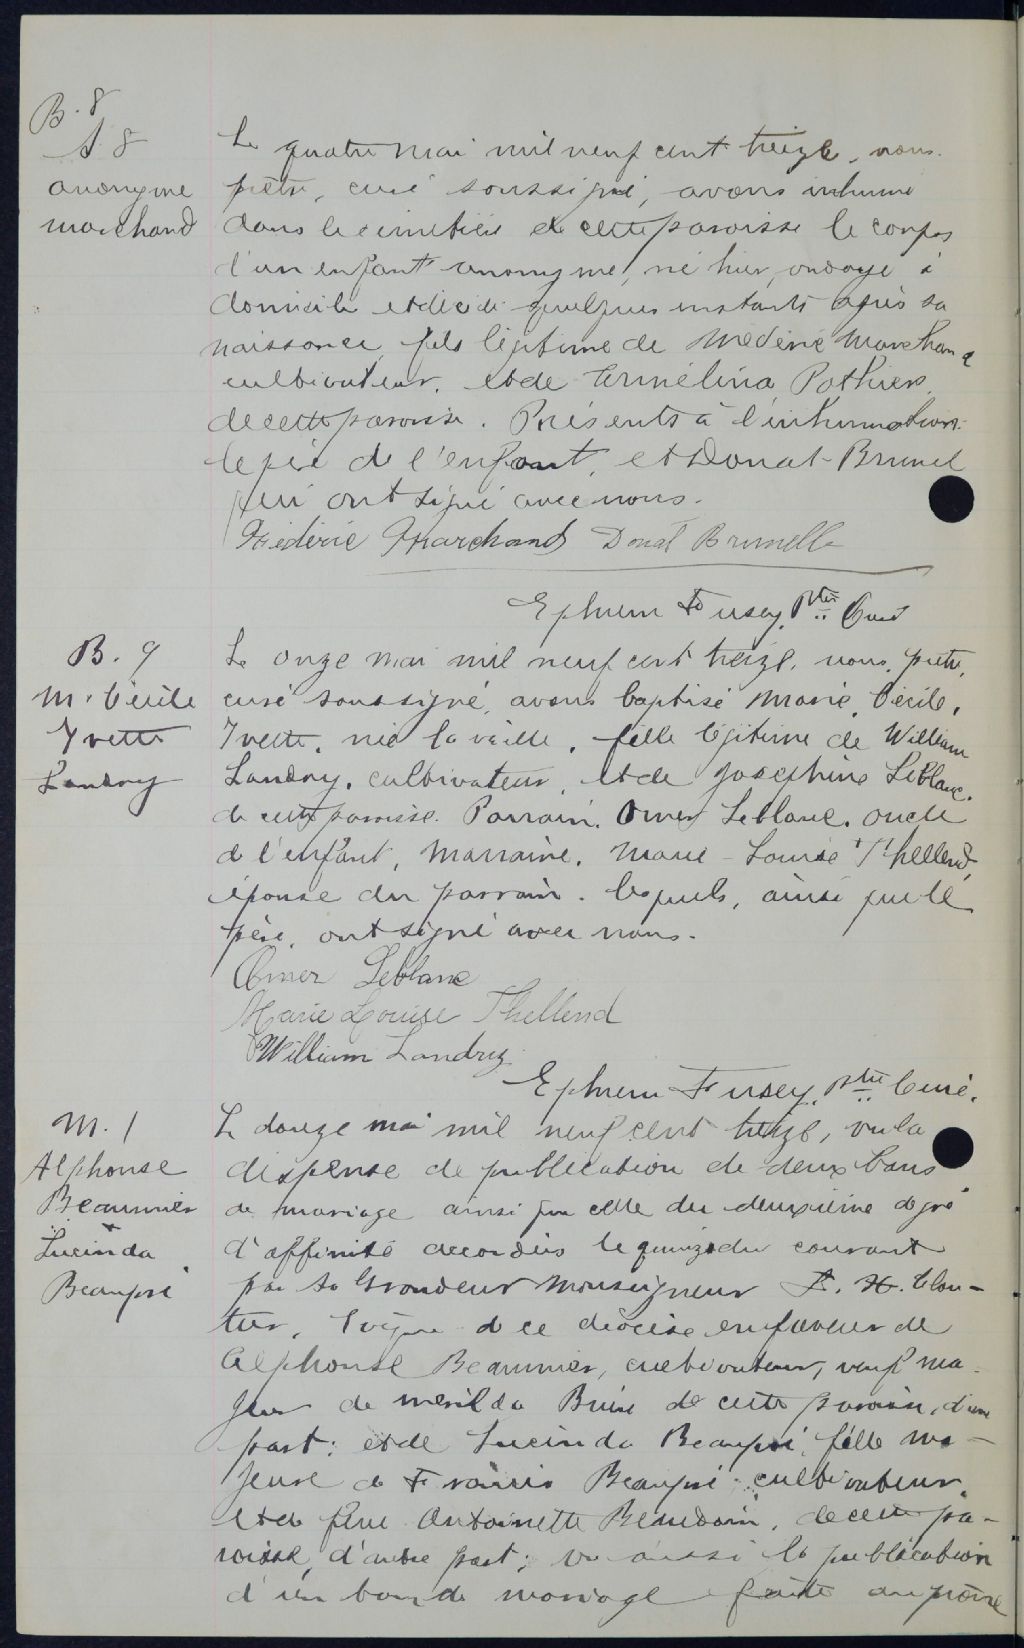 B. 8
S 8
anonyme
marchand
Le quatre mai mil neuf cent treize, nous
prêtre, curé soussigné, avons inhumé
dans le cimetière de cette paroisse le corps
d'un enfant anonyme, né hier, ondoyé à
domicile et décédé quelques instants après sa
naissance, fils légitime de Médéric Marchand
cultivateur, et de Armélina Pothier,
de cette paroisse. Présents à l'inhumation:
le père de l'enfant, et Donat Brunel
qui ont signé avec nous.
Médéric Marchand Donat Brunelle
Ephrem Fusey, Ptre Curé
B. 9
M. Cécile
Yvette
Landry
Le onze mai mil neuf cent treize, nous, prêtre,
curé soussigné, avons baptisé Marie, Cécile,
Yvette, née la veille, fille légitime de William
Landry, cultivateur, et de Joséphine Leblanc,
de cette paroisse. Parrain, Omer Leblanc, oncle
de l'enfant, Marraine, Marie-Louise Thellend,
épouse du parrain. Lesquels, ainsi que le
père, ont signé avec nous.
Omer Leblanc
Marie Louise Thellend
William Landry
Ephrem Fusey, Ptre Curé.
M. 1
Alphonse
Beaumier
+
Lucinda
Beaupré
Le douze mai mil neuf cent treize, vu la
dispense de publication de deux bans
de mariage ainsi que celle du deuxième degré
d'affinité accordées le quinze du courant
par Sa Grandeur Monseigneur F. X. Clou-
tier, Évêque de ce diocèse en faveur de
Alphonse Beaumier, cultivateur, veuf ma-
jeur de Merilda Brière de cette paroisse, d'une
part; et de Lucinda Beaupré, fille ma-
jeure de Francis Beaupré cultivateur,
et de feue Antoinette Beaudoin, de cette pa-
roisse, d'autre part; vu aussi la publication
d'un ban de mariage faite au prône